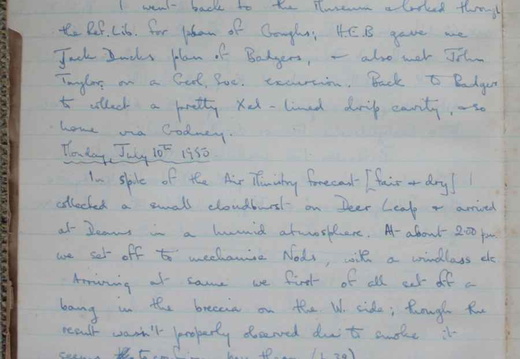 I went back to the Museum & looked through
the Ref. Lib. for plan of Goughs; H.E.B gave me
Jack Ducks plan of Badgers, & also met John
Taylor, on a Geol. Soc. excursion. Back to Badgers
to collect a pretty Xal-lined drip cavity, & so
home via Godney.
Monday, July 10th 1950
In spite of the Air Ministry forecast [fair & dry] I
collected a small cloudburst on Deer Leap & arrived
at Deans in a humid atmosphere. At about 2.00 pm
we set off to mechanise Nods, with a windlass etc
Arriving at same we first of all set off a
bang in the breccia on the W. side; though the
result wasn't properly observed due to smoke it
seems